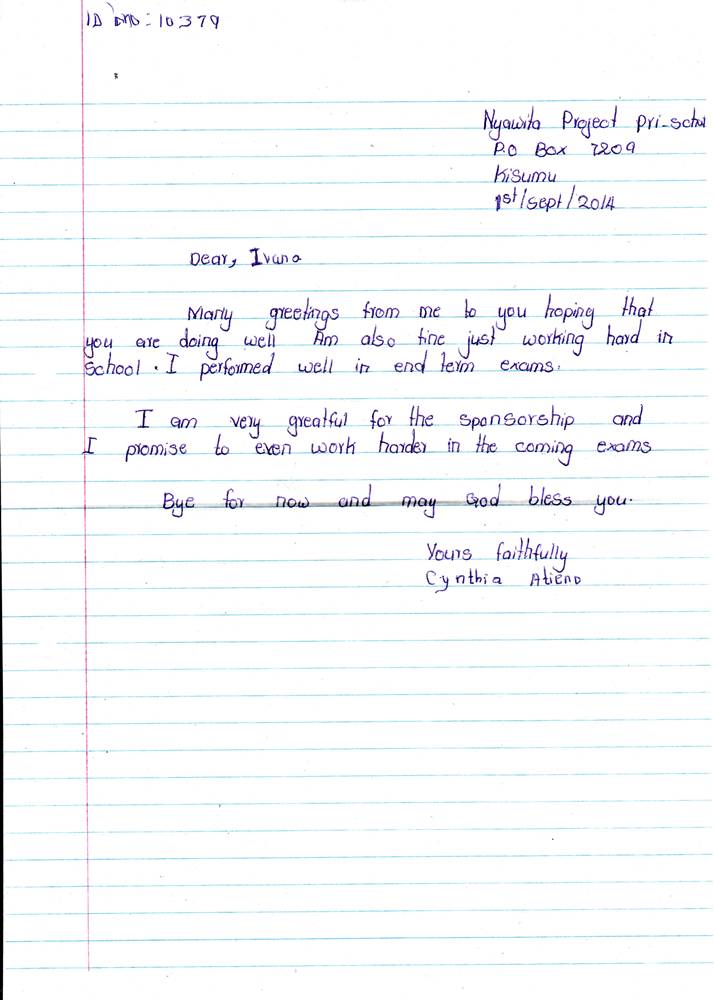 ID no: 10379
Nyawita Project pri-schl
P.O Box 7209
Kisumu
1st/sept/2014
Dear, Ivana
Many greetings from me to you hoping that
you are doing well Am also fine just working hard in
school. I performed well in end term exams.
I am very greatful for the sponsorship and
I promise to even work harder in the coming exams
Bye for now and may God bless you.
Yours faithfully
Cynthia Atieno